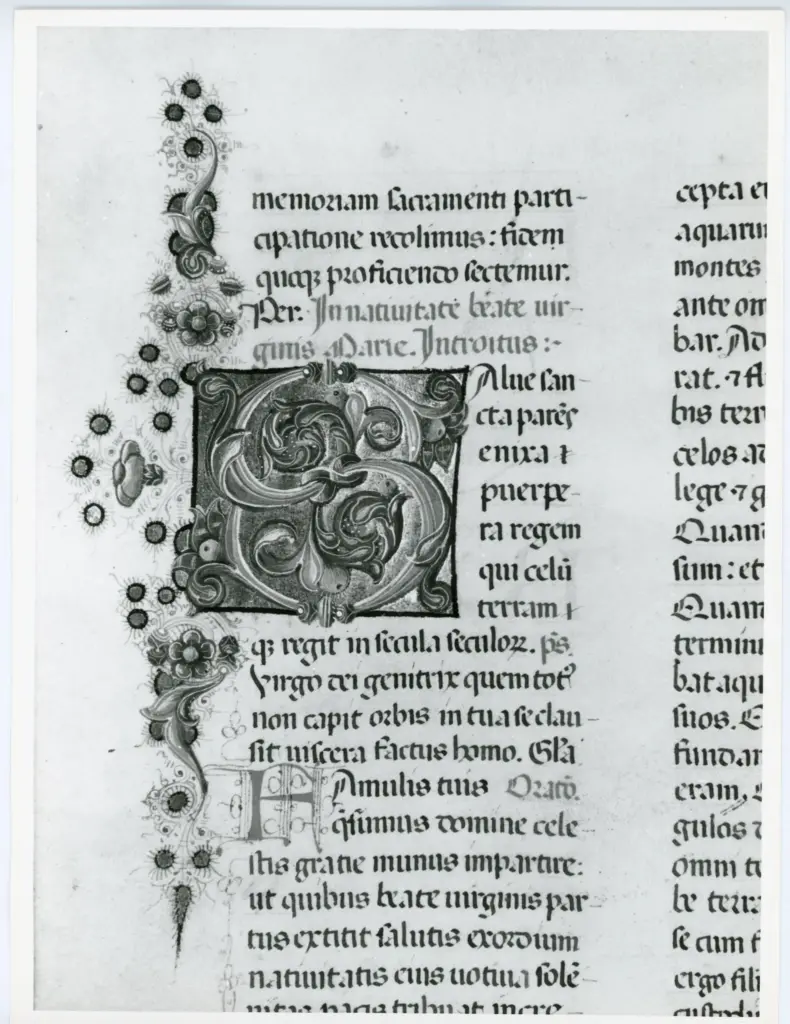 memoriam sacramenti parti-
cipatione recolimus: fidem
quoqꝫ proficiendo sectemur.
Per. In natiuitate beate uir-
ginis Marie. Introitus:-
SAlue san-
cta parēs
enixa ⁊
puerpe-
ra regem
qui celū
terram ⁊
qꝫ regit in secula seculoꝝ. ps.
Virgo dei genitrix quem totꝰ
non capit orbis in tua se clau-
sit uiscera factus homo. Gl'a
FAmulis tuis Oratō.
q̄sumus domine cele-
stis gratie munus impartire:
ut quibus beate uirginis par-
tus extitit salutis exordium
natiuitatis eius uotiua solē-
nitas pacis tribuat incre-
cepta e
aquaru
montes
ante om
bar. Ad
rat. ⁊ fl
bis terr
celos a
lege ⁊ g
Quan
sum: et
Quam
termini
bat aqu
suos. E
fundam
eram,
gulos
omni te
be terra
se cum f
ergo fili
custodi